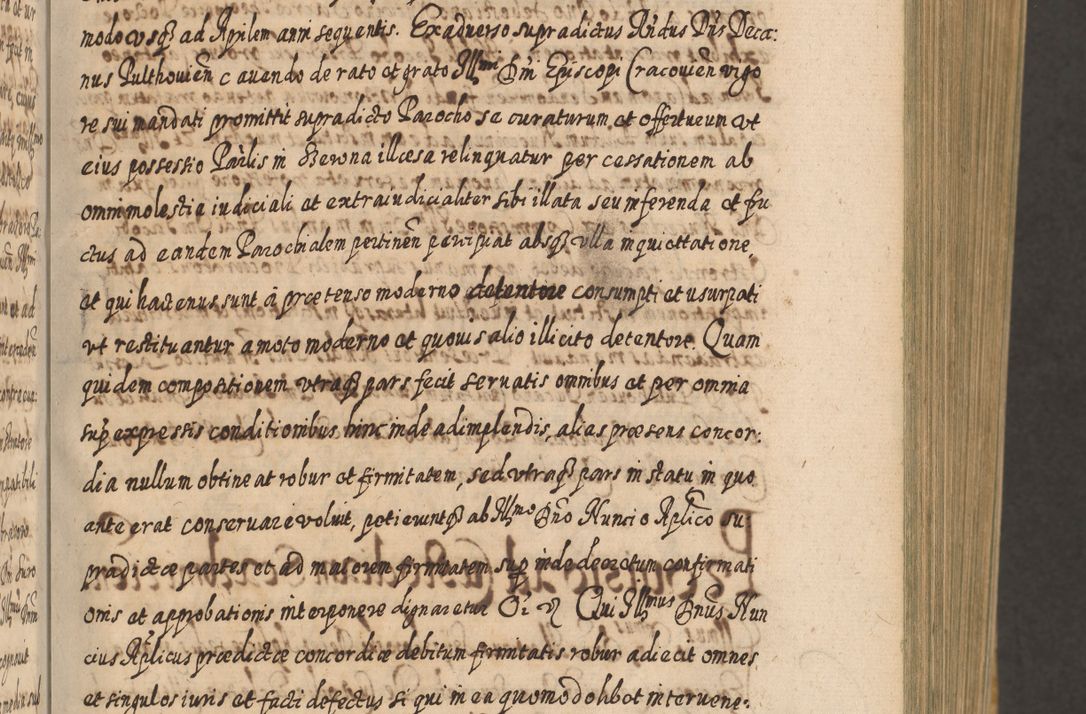 modo usq ad Aprilem anni sequentis. Ex adverso supradictus Rndus Dns Deca:
nus Pulthovien cavendo de rato et grato Illmi Dni Episcopi Cracovien vigo
re sui mandati promittit supradicto Parocho se curaturum et effecturum ut
eius possessio Parlis in illaesa relinquatur per cessationem ab
omni molestia iudiciali et extraiudicialiter sibi illata seu inferenda et fru
ctus ad eandem Parochialem pertinen percipiat absq ulla inquiettatione,
et qui hactenus sunt a praetenso moderno detentore consumpti et usurpati
ut restituantur amoto moderno et quovis alio illicito detentore. Quam
quidem compositionem utraq pars fecit servatis omnibus et per omnia
sup expressis conditionibus hinc inde adimplendis, alias praesens concor:
dia nullum obtineat robur et firmitatem, sed utraq pars in statu in quo
ante erat conservare voluit, petieruntq ab Illmo Dno Nuncio Aplico su:
pradictae partes et ad maiorem firmitatem sup inde decretum confirmati
onis et approbationis interponere dignaretur Qui Illmus Dnus Nun
cius Aplicus praedictae concordiae debitum firmitatis robur adiecit omnes
et singulos iuris et facti defectus si qui in ea quomodolibet intervene: